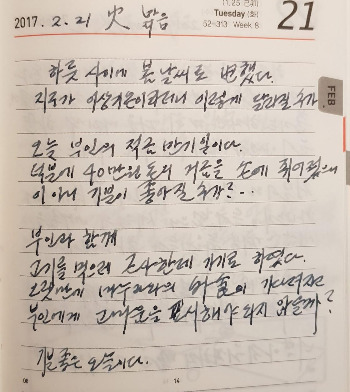 2017. 2. 21 火 맑음
(1.25 己巳)
Tuesday (화)
52-313 Week 8
21
FEB
하룻 사이에 봄날씨로 변했다.
지구가 이상기온이라더니 이렇게 달라질 수가
오늘 부인의 적금 만기일이다.
덕분에 40만원 돈의 거금을 손에 쥐어줬으니
이 아니 기분이 좋아질 수가?...
부인과 함께
고기를 먹으러 가기로 하였다.
부인에게 고마움을 표시해야 되지 않을까?
기분좋은 오늘이다.